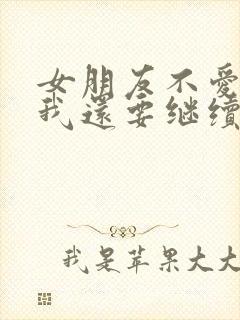 女朋友不愛
我還要继續
我是苹果大大